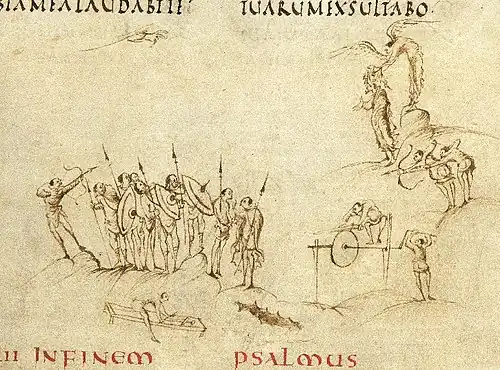 BIAMEALAUDAB TUARUMEXSULTABO
II INFINEM PSALMUS